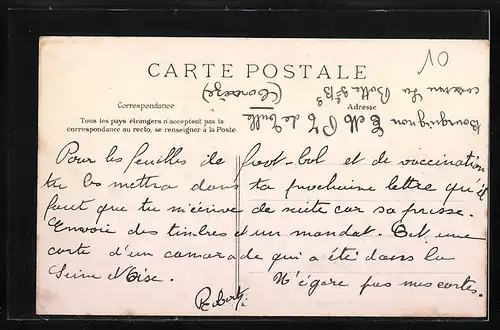 10
CARTE POSTALE
Correspondance
Adresse
Tous les pays étrangers n'acceptent pas la
correspondance au recto, se renseigner à la Poste.
Bourguignon E M P T de Tulle
caserne La Botte
(Corrèze)
Pour les feuilles de foot-bol et de vaccination
tu les mettra dans ta prochaine lettre qu'il
faut que tu m'écrive de suite car sa presse.
Envoie des timbres et un mandat. C'est une
carte d'un camarade qui a été dans la
Seine et Oise. N'égare pas mes cartes.
Robert